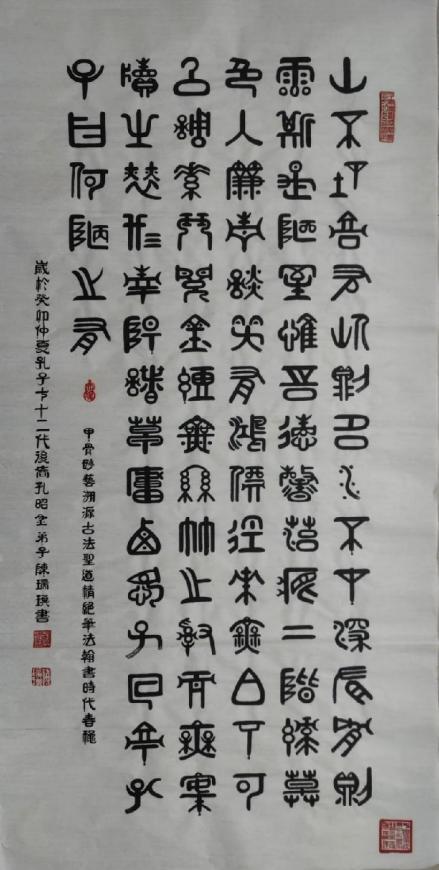 山不在高有仙則名水不在深有龍則
靈斯是陋室惟吾德馨苔痕上階綠草
色入簾青談笑有鴻儒往來無白丁可
以調素琴閱金經無絲竹之亂耳無案
牘之勞形南陽諸葛廬西蜀子雲亭孔
子曰何陋之有
甲骨妙藝溯源古法聖道情絕筆法翰書時代春穐
歲於癸卯仲夏孔子七十二代後裔孔昭全弟子陳瑞瑛書